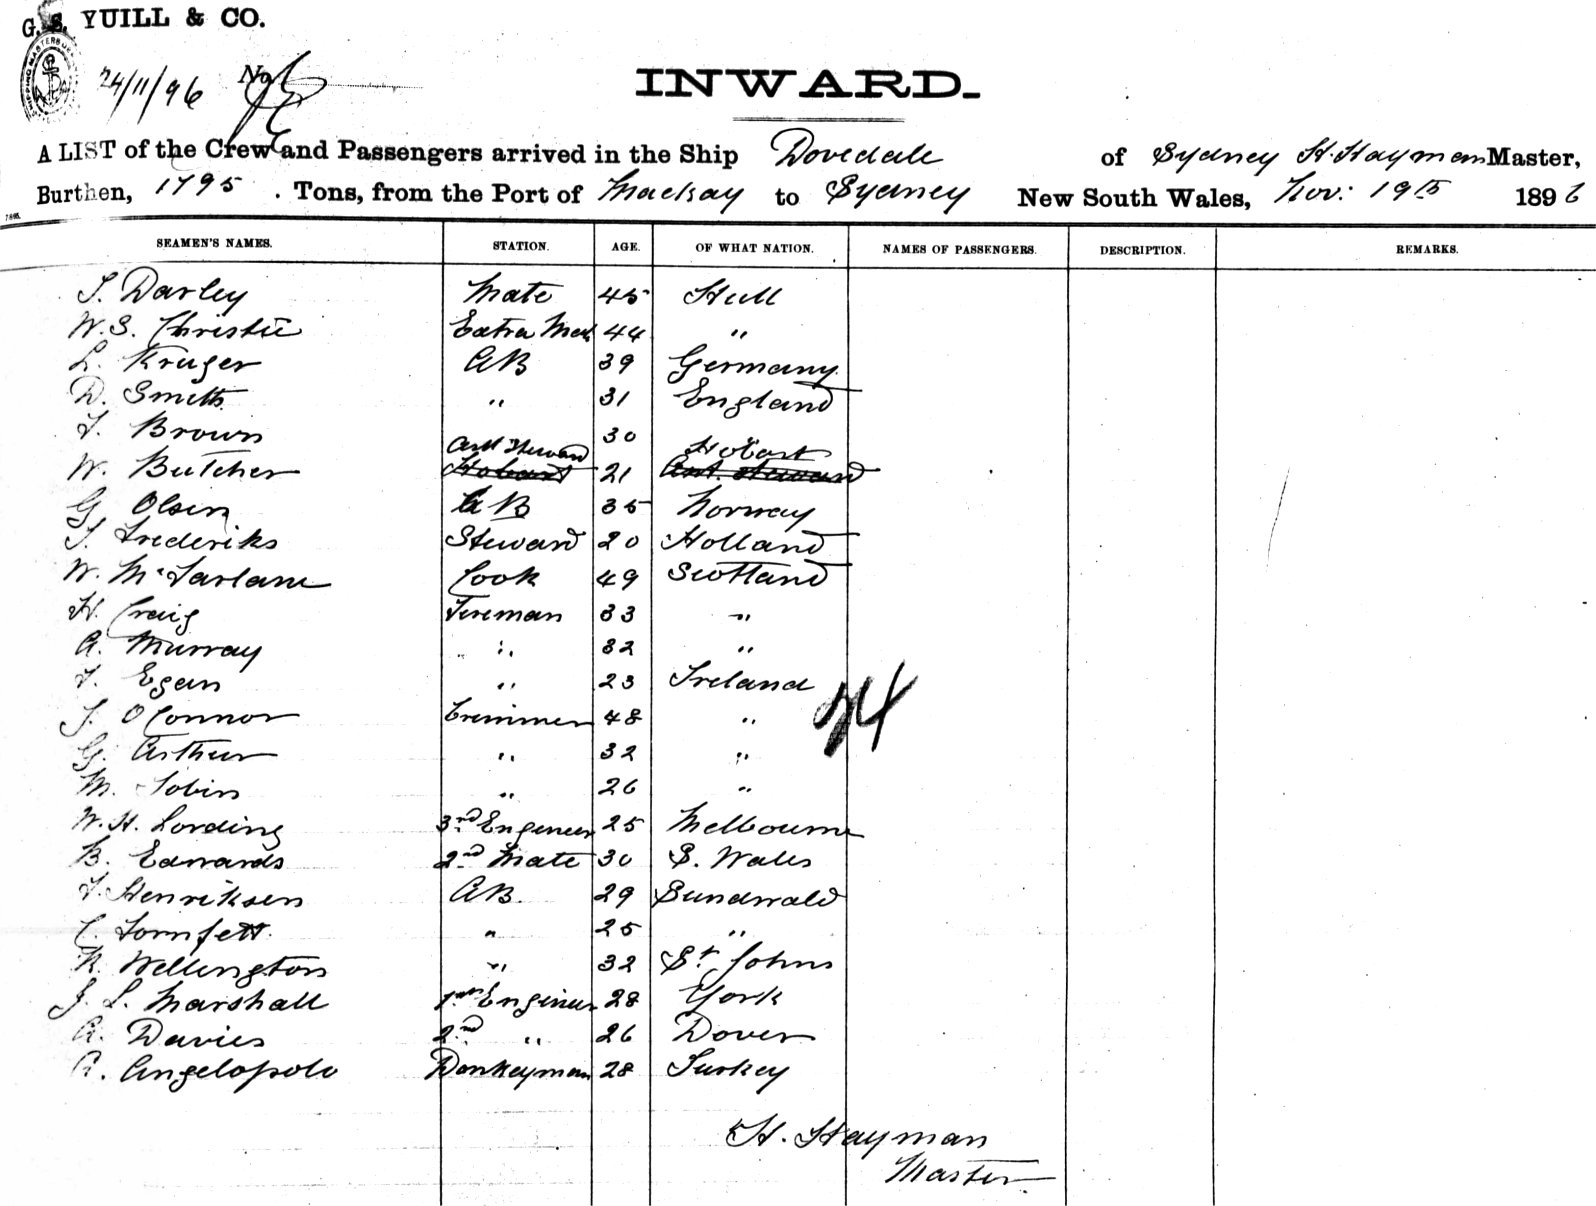 G. S. YUILL & CO.
24/11/96 No
INWARD.
A LIST of the Crew and Passengers arrived in the Ship Dovedale of Sydney H. Hayman Master,
Burthen, 1795 . Tons, from the Port of Mackay to Sydney New South Wales, Nov: 19th 1896
SEAMEN'S NAMES. STATION. AGE. OF WHAT NATION. NAMES OF PASSENGERS. DESCRIPTION. REMARKS.
Darley Mate 45 Hull
W. S. Christie Extra Mate 44 "
L. Kruger AB 39 Germany
D. Smith " 31 England
Brown 30
W. Butcher Asst Steward Hobart 21 Hobart Ast. Steward
G Olsen AB 35 Norway
Frederiks Steward 20 Holland
W. McFarlane Cook 49 Scotland
H. Craig Fireman 33 "
A. Murray " 32 "
Egan " 23 Ireland
J. O'Connor Trimmer 48 " 24
G. Arthur " 32 "
M. Tobin " 26 "
W. H. Lording 3rd Engineer 25 Melbourne
B. Edwards 2nd Mate 30 S. Wales
Henriksen AB. 29 Sundwald
C. Tornfett " 25 "
Wellington " 32 St Johns
J. L. Marshall Engineer 28 York
A. Davies 2nd " 26 Dover
A. Angelopolo Donkeyman 28 Turkey
H. Hayman
Master